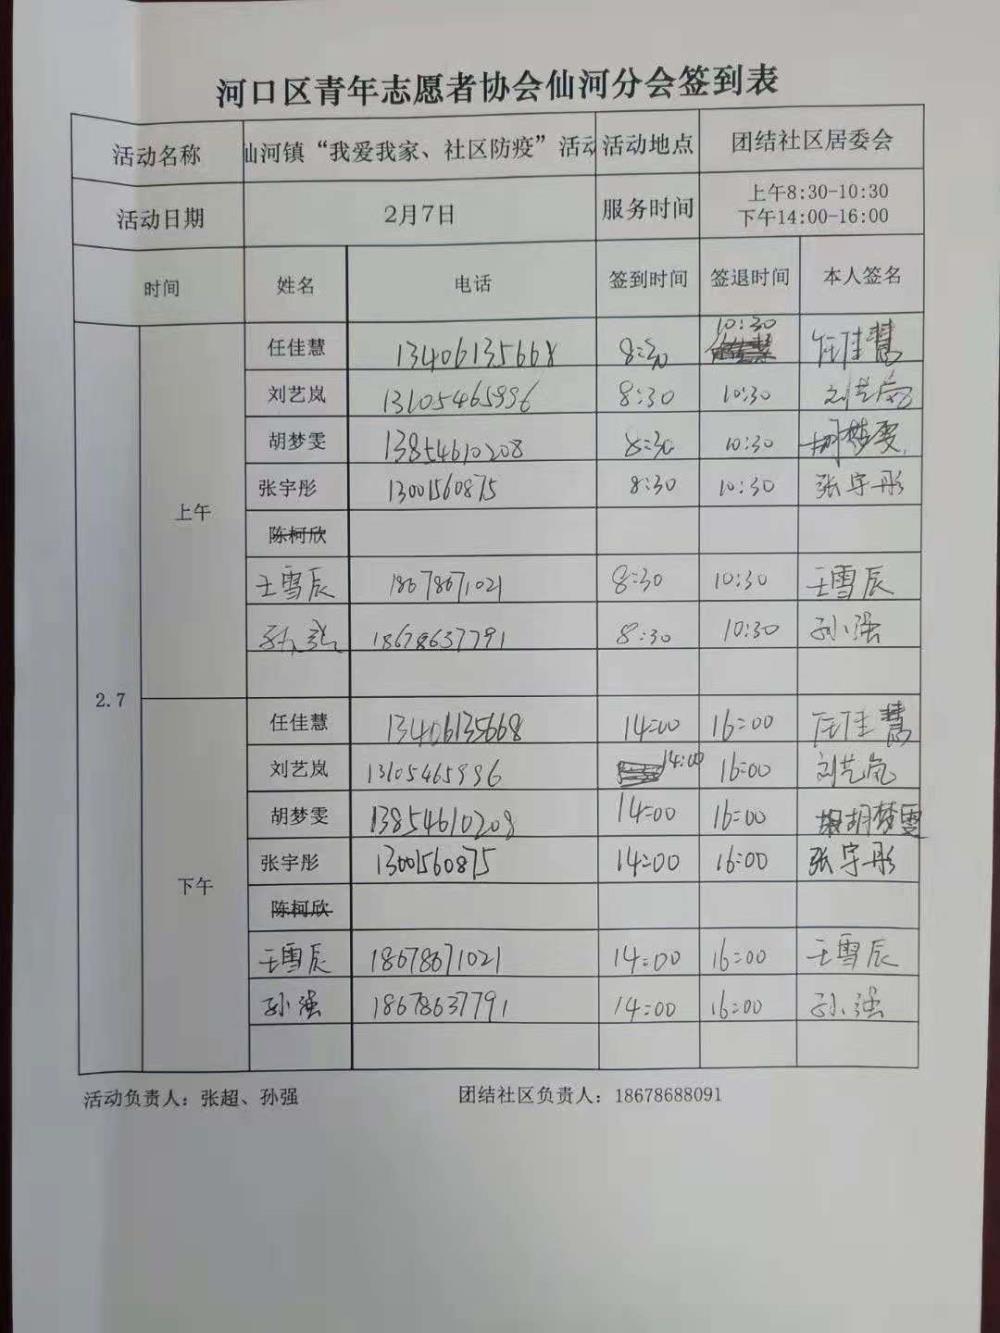 河口区青年志愿者协会仙河分会签到表
活动名称 仙河镇“我爱我家、社区防疫”活动 活动地点 团结社区居委会
活动日期 2月7日 服务时间 上午8:30-10:30
下午14:00-16:00
时间 姓名 电话 签到时间 签退时间 本人签名
2.7
上午
任佳慧 13406135668 8:30 10:30 任佳慧
刘艺岚 13105465996 8:30 10:30 刘艺岚
胡梦雯 13854610208 8:30 10:30 胡梦雯
张宇彤 13001560875 8:30 10:30 张宇彤
陈柯欣
王雪辰 18678671021 8:30 10:30 王雪辰
孙强 18678637791 8:30 10:30 孙强
下午
任佳慧 13406135668 14:00 16:00 任佳慧
刘艺岚 13105465996 14:00 16:00 刘艺岚
胡梦雯 13854610208 14:00 16:00 胡梦雯
张宇彤 13001560875 14:00 16:00 张宇彤
陈柯欣
王雪辰 18678671021 14:00 16:00 王雪辰
孙强 18678637791 14:00 16:00 孙强
活动负责人：张超、孙强 团结社区负责人：18678688091